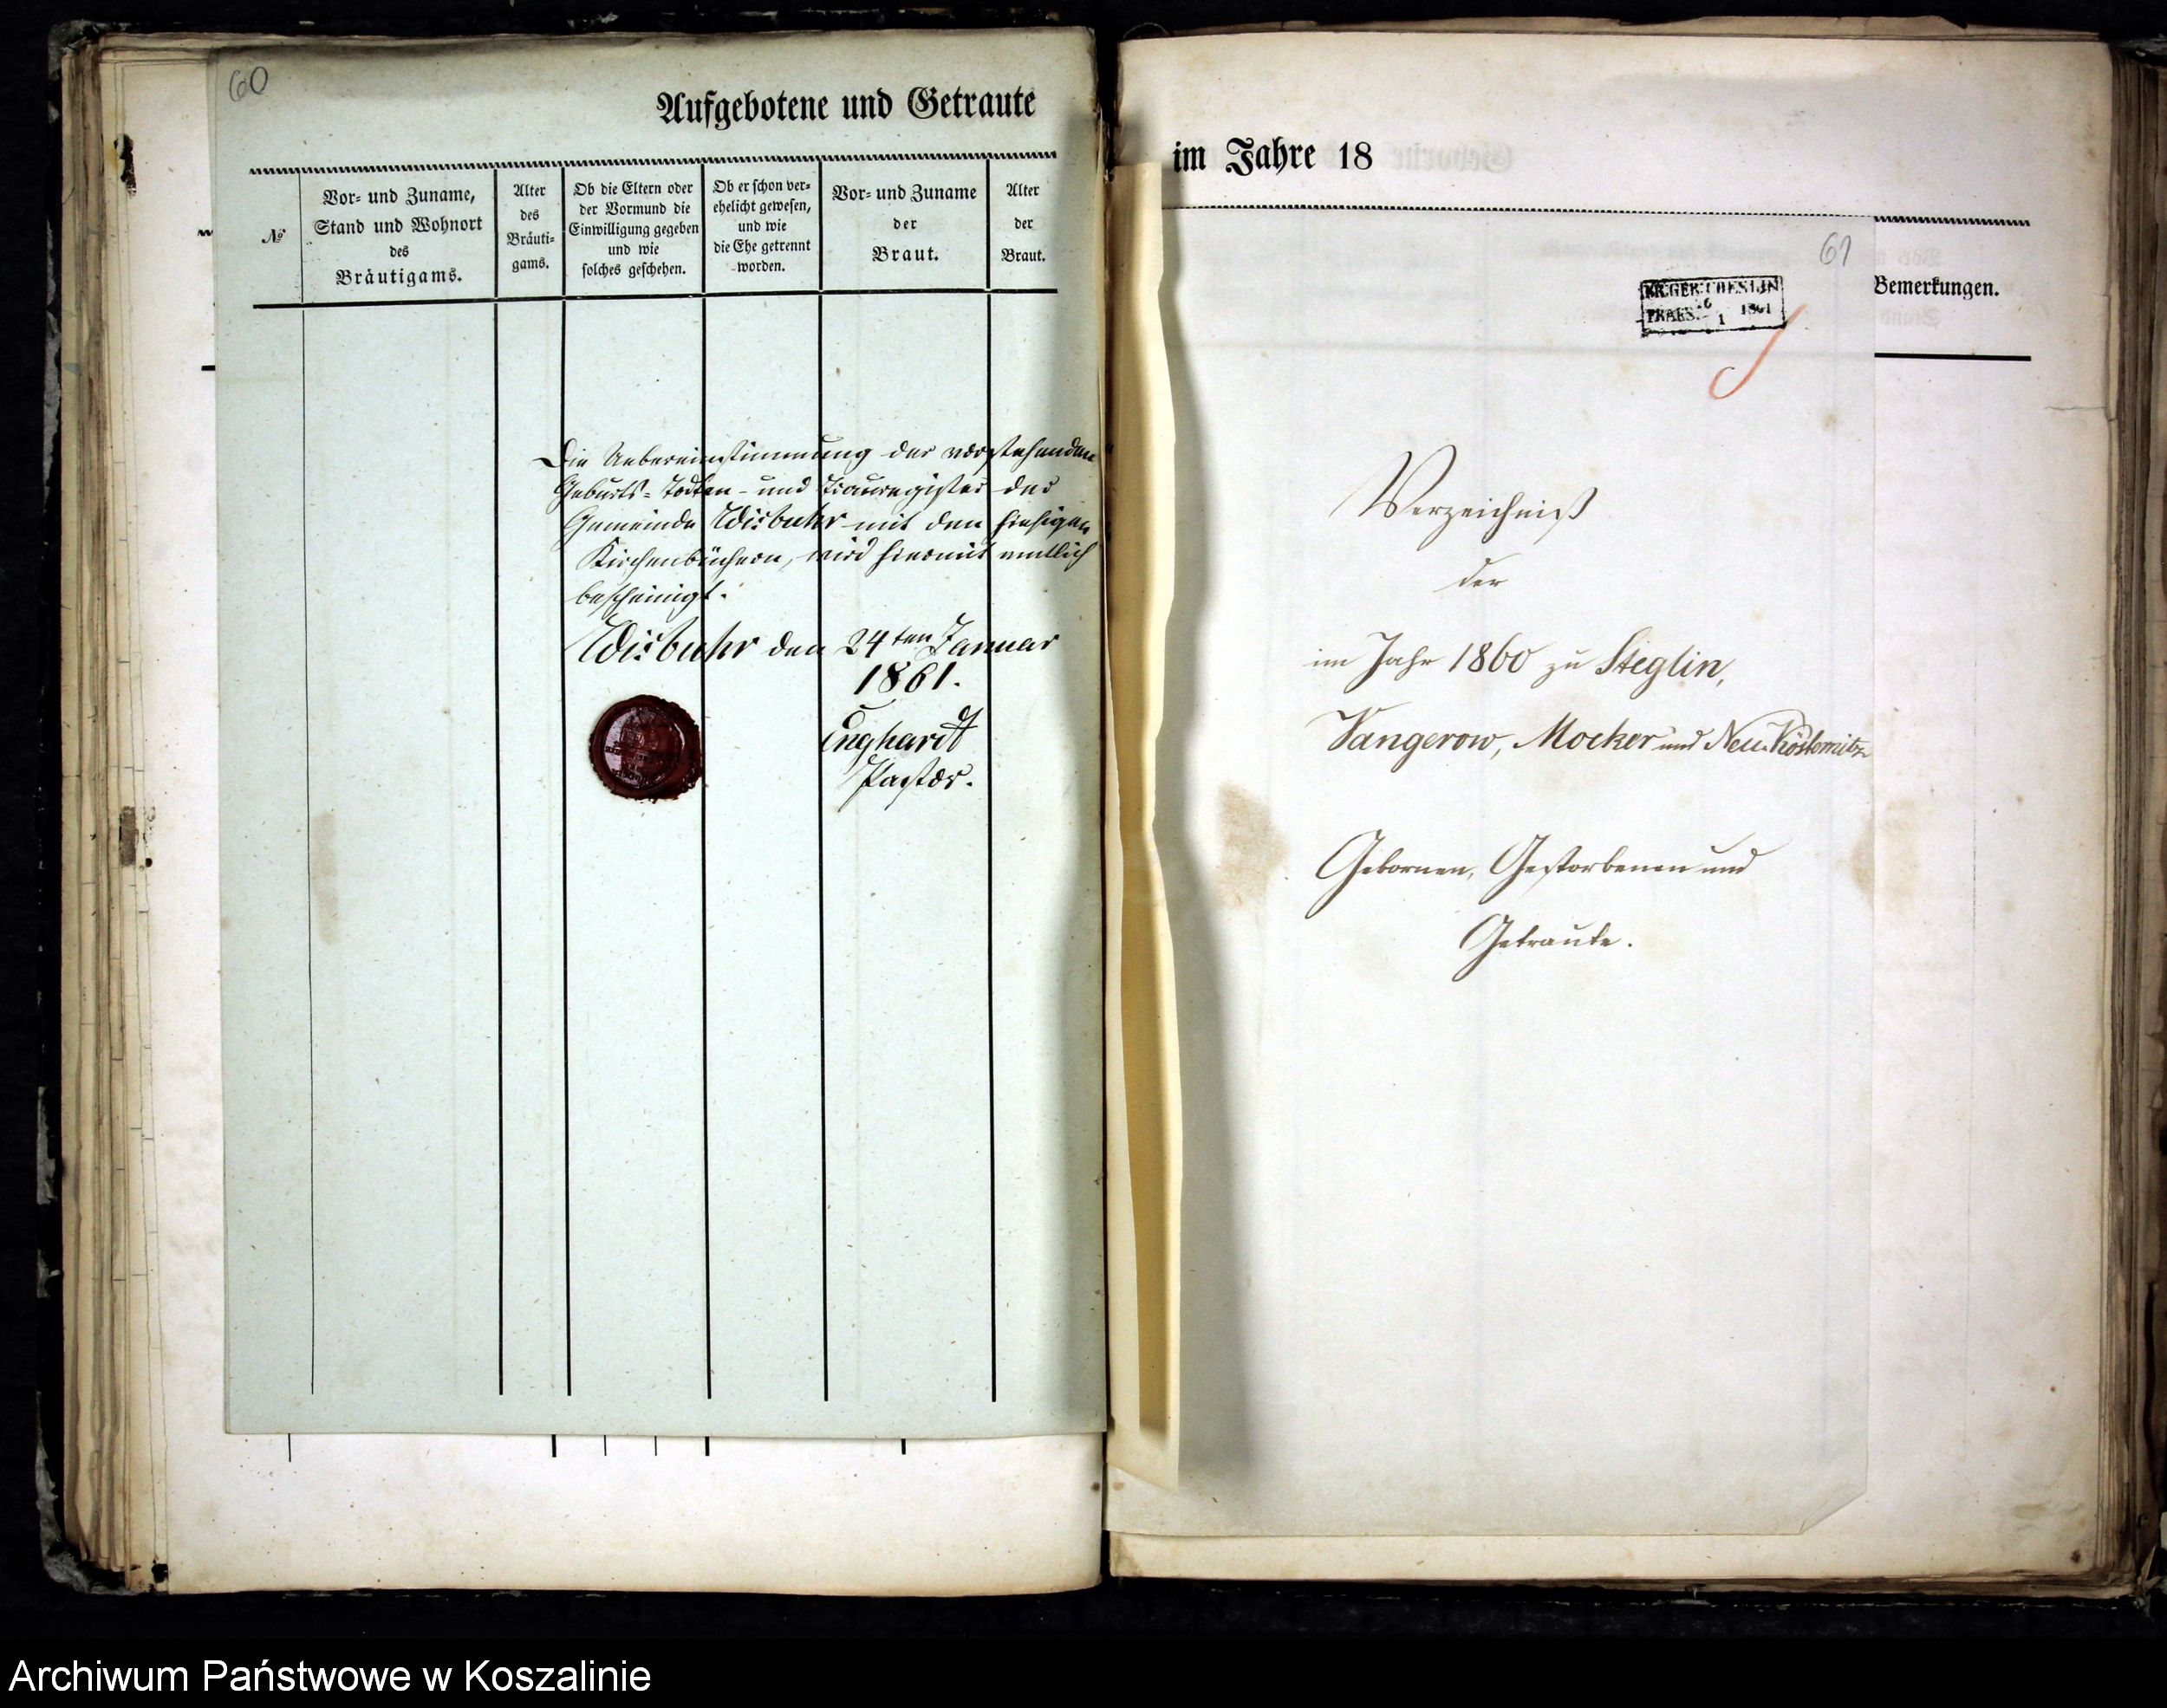 60
Aufgebotene und Getraute
№
Vor- und Zuname,
Stand und Wohnort
des
Bräutigams.
Alter
des
Bräuti-
gams.
Ob die Eltern oder
der Vormund die
Einwilligung gegeben
und wie
solches geschehen.
Ob er schon ver-
ehelicht gewesen,
und wie
die Ehe getrennt
worden.
Vor- und Zuname
der
Braut.
Alter
der
Braut.
Die Uebereinstimmung der vorstehenden
Geburts- Todten- und Trauregister der
Gemeinde Wisbuhr mit den hiesigen
Kirchenbüchern, wird hiermit amtlich
bescheinigt.
Wisbuhr den 24ten Januar
1861.
Enghardt
Pastor.
im Jahre 18
61
KR.GER.COESLIN
PRAES. 1 1861
Bemerkungen.
Verzeichniß
der
im Jahr 1860 zu Steglin,
Vangerow, Mocker und Neu Kösternitz
Gebornen, Gestorbenen und
Getraute.
Archiwum Państwowe w Koszalinie